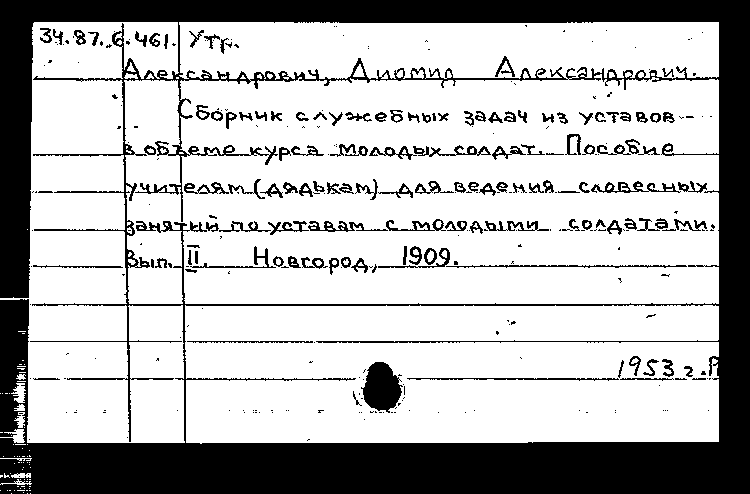 34.87.6.461. Утр.
Александрович, Диомид Александрович.
Сборник служебных задач из уставов -
в объеме курса молодых солдат. Пособие
учителям (дядькам) для ведения словесных
занятий по уставам с молодыми солдатами.
Вып. II. Новгород, 1909.
1953 г.